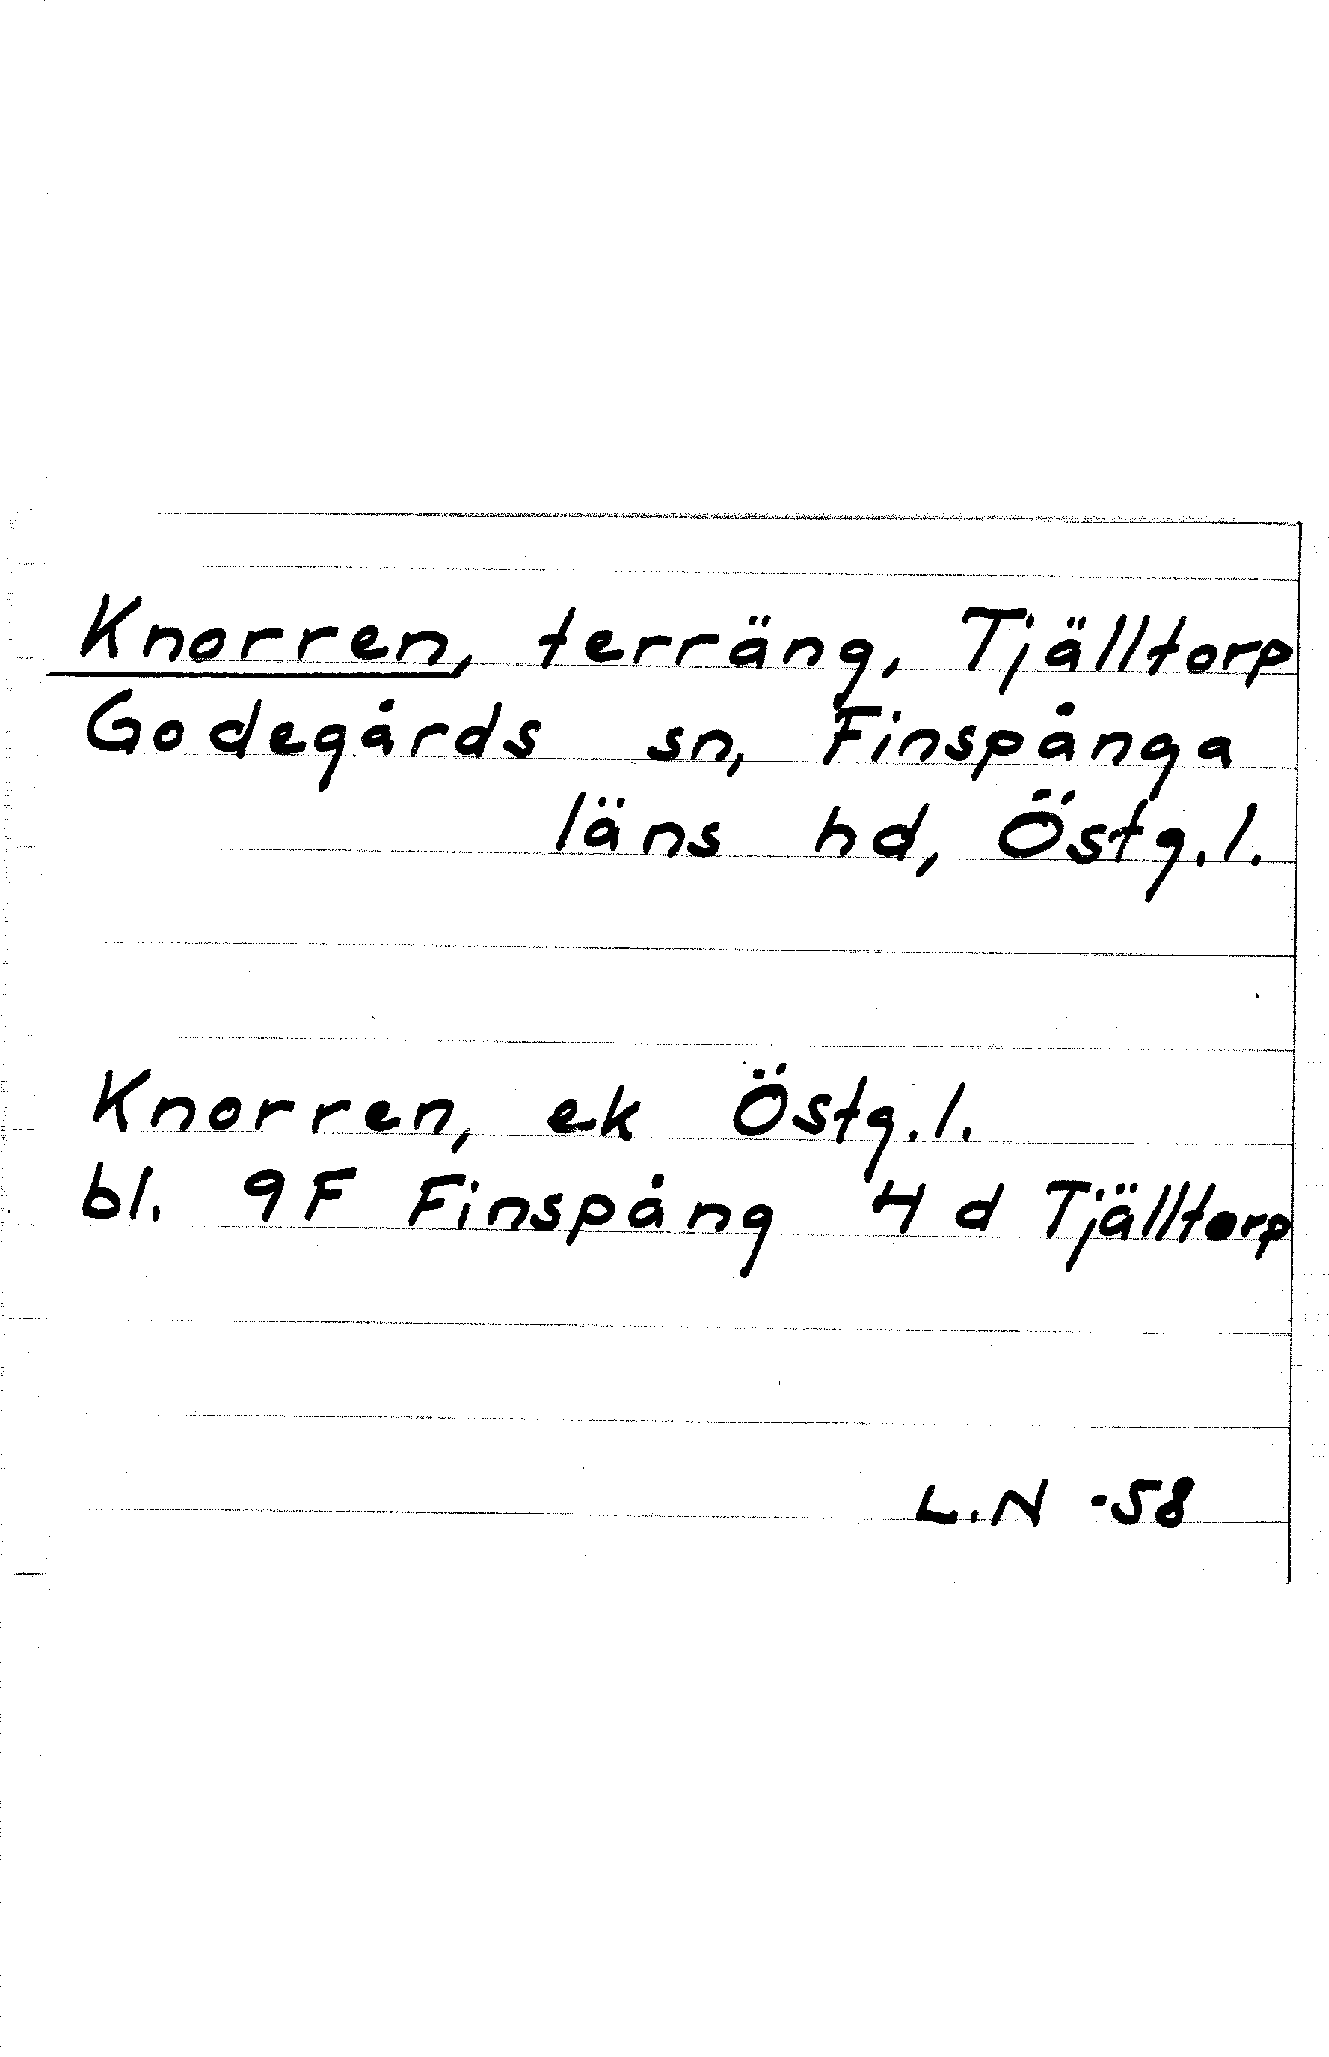 Knorren, terräng, Tjälltorp
Godegårds sn, Finspånga
läns hd, Östg.l.
Knorren, ek Östg.l.
bl. 9F Finspång 4 d Tjälltorp
L.N -58